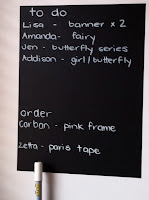 to do
Lisa - banner x 2
Amanda - fairy
Jen - butterfly series
Addison - girl/butterfly
order
Carbon - pink frame
Zetta - paris tape